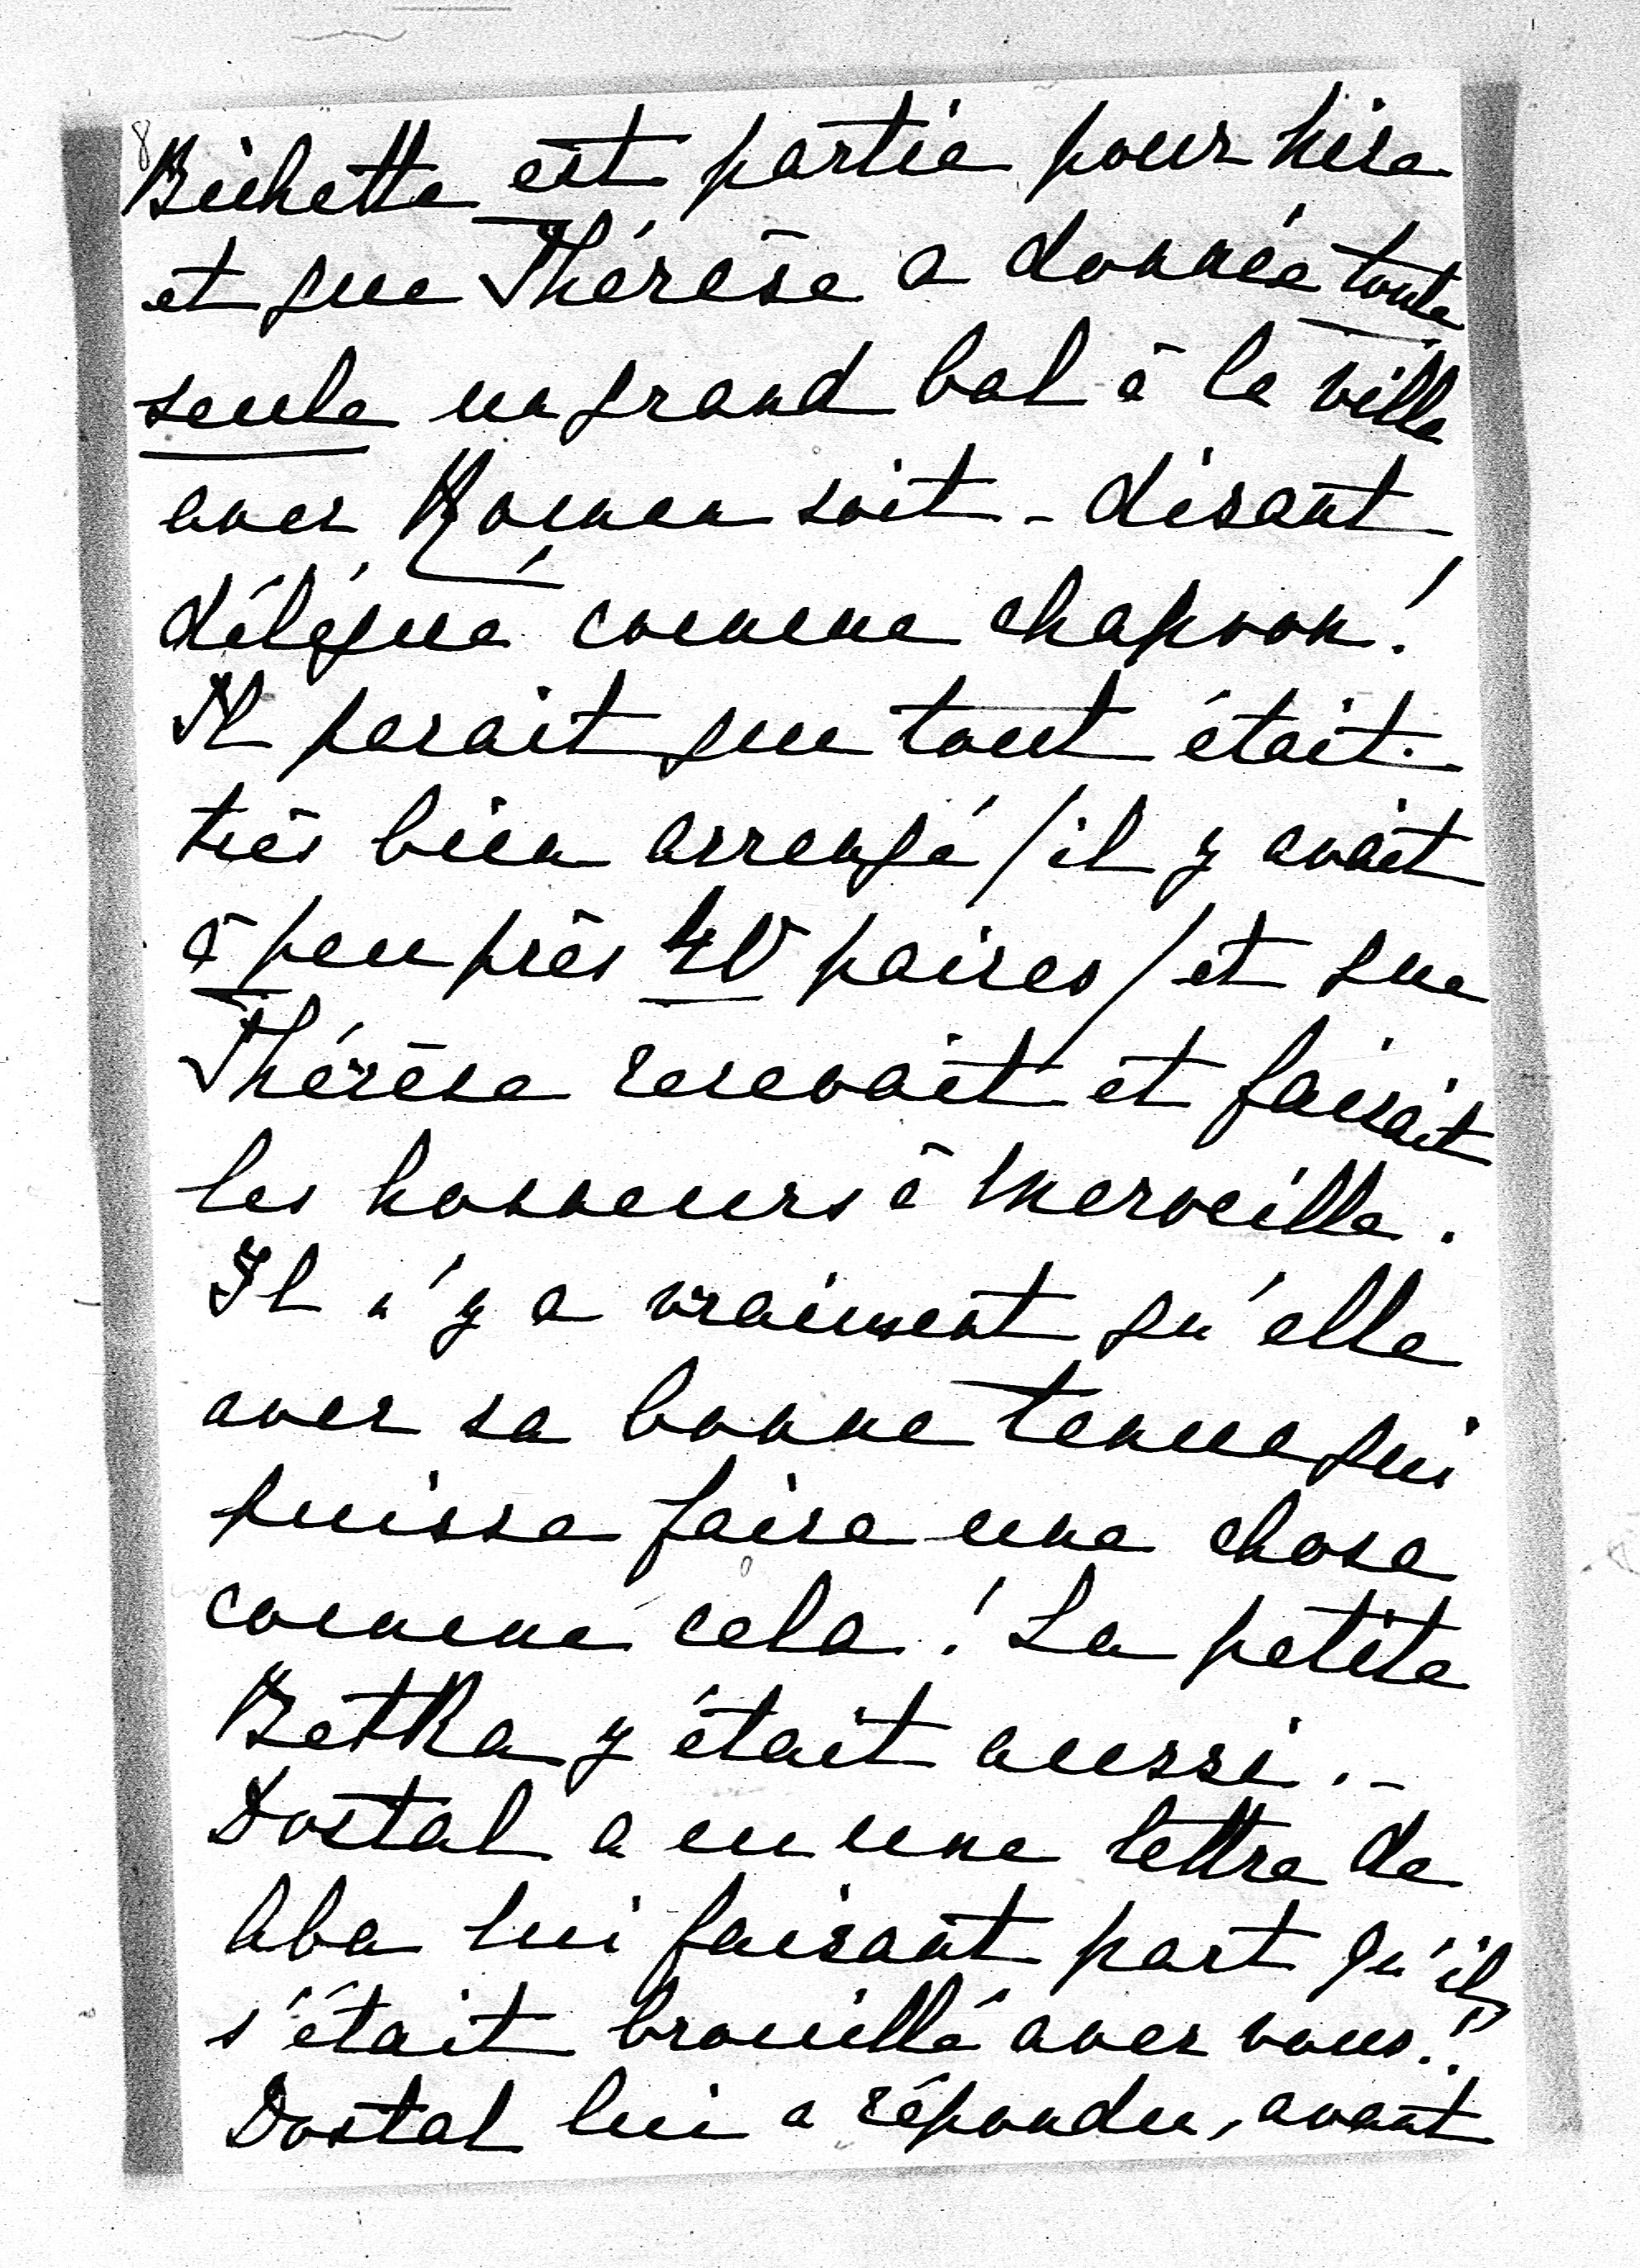 8
Bichette est partie pour Nisa
et que Thérèse a donnée toute
seule un grand bal à la ville
avec Roman soit-disant
délégué comme chapron!
Il parait que tout était
très bien arrangé /il y avait
à peu près 40 paires/ et que
Thérèse recevait et faisait
les honneurs à merveille.
Il n'y a vraiment qu'elle
avec sa bonne tenue qui
puisse faire une chose
comme cela! La petite
Betka y était aussi.-
Dostal a eu une lettre de
Aba lui faisant part qu'il
s'était brouillé avec vous!!
Dostal lui a répondu, avant